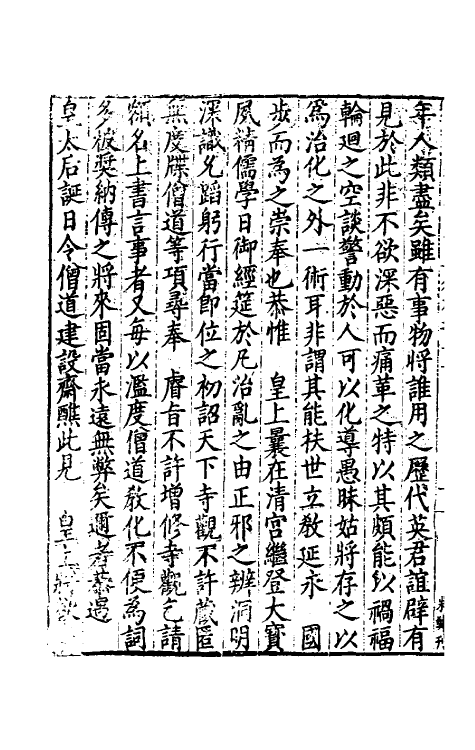 年人類盡矣雖有事物將誰用之歷代英君誼辟有
見於此非不欲深惡而痛革之特以其頗能以禍福
輪迴之空談警動於人可以化導愚昧姑將存之以
爲治化之外一術耳非謂其能扶世立教延永　國
步而為之崇奉也恭惟　皇上曩在清宮繼登大寶
夙精儒學日御經筵於凡治亂之由正邪之辨洞明
深識允蹈躬行當即位之初詔天下寺觀不許藏匿
無度牒僧道等項尋奉　睿旨不許增修寺觀乞請
額名上書言事者又每以濫度僧道敎化不便為詞
多被奬納傳之將來固當永遠無弊矣邇者恭遇
皇太后誕日令僧道建設齋醮此見　皇上將欲